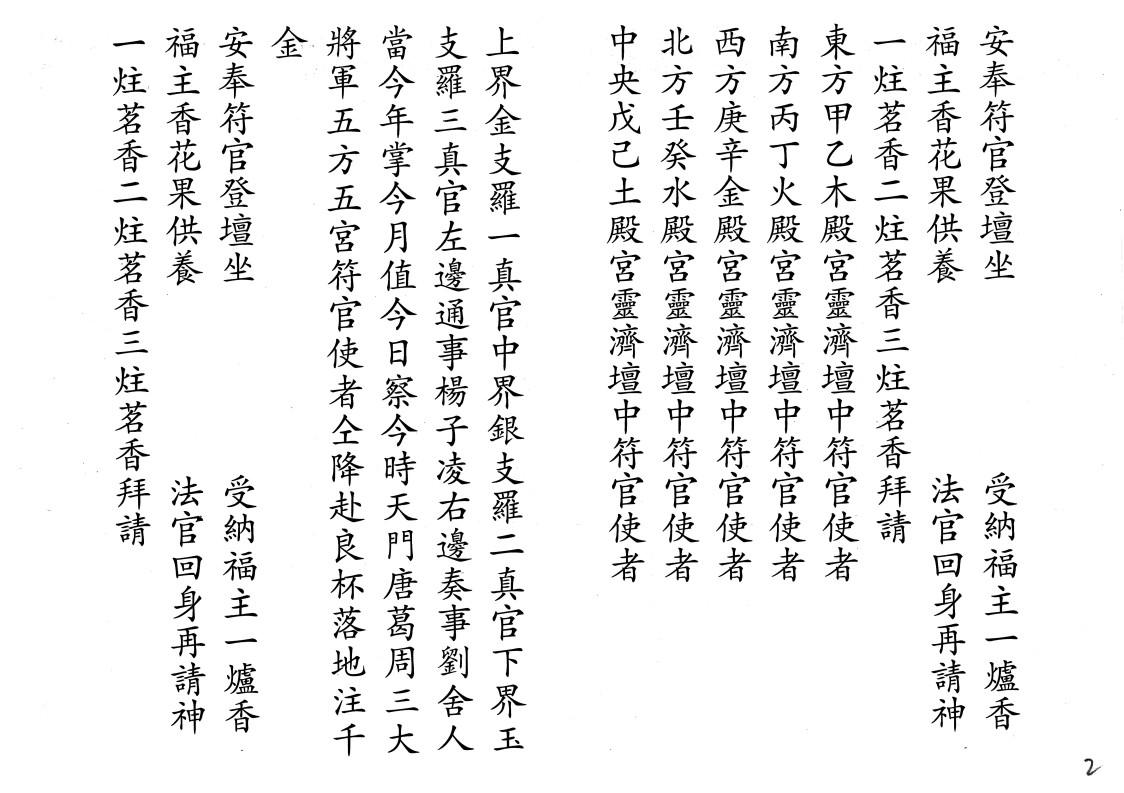 安奉符官登壇坐　受納福主一爐香
福主香花果供養　法官回身再請神
一炷茗香二炷茗香三炷茗香拜請
東方甲乙木殿宮靈濟壇中符官使者
南方丙丁火殿宮靈濟壇中符官使者
西方庚辛金殿宮靈濟壇中符官使者
北方壬癸水殿宮靈濟壇中符官使者
中央戊己土殿宮靈濟壇中符官使者
上界金支羅一真官中界銀支羅二真官下界玉
支羅三真官左邊通事楊子凌右邊奏事劉舍人
當今年掌今月值今日察今時天門唐葛周三大
將軍五方五宮符官使者仝降赴良杯落地注千
金
安奉符官登壇坐　受納福主一爐香
福主香花果供養　法官回身再請神
一炷茗香二炷茗香三炷茗香拜請
2